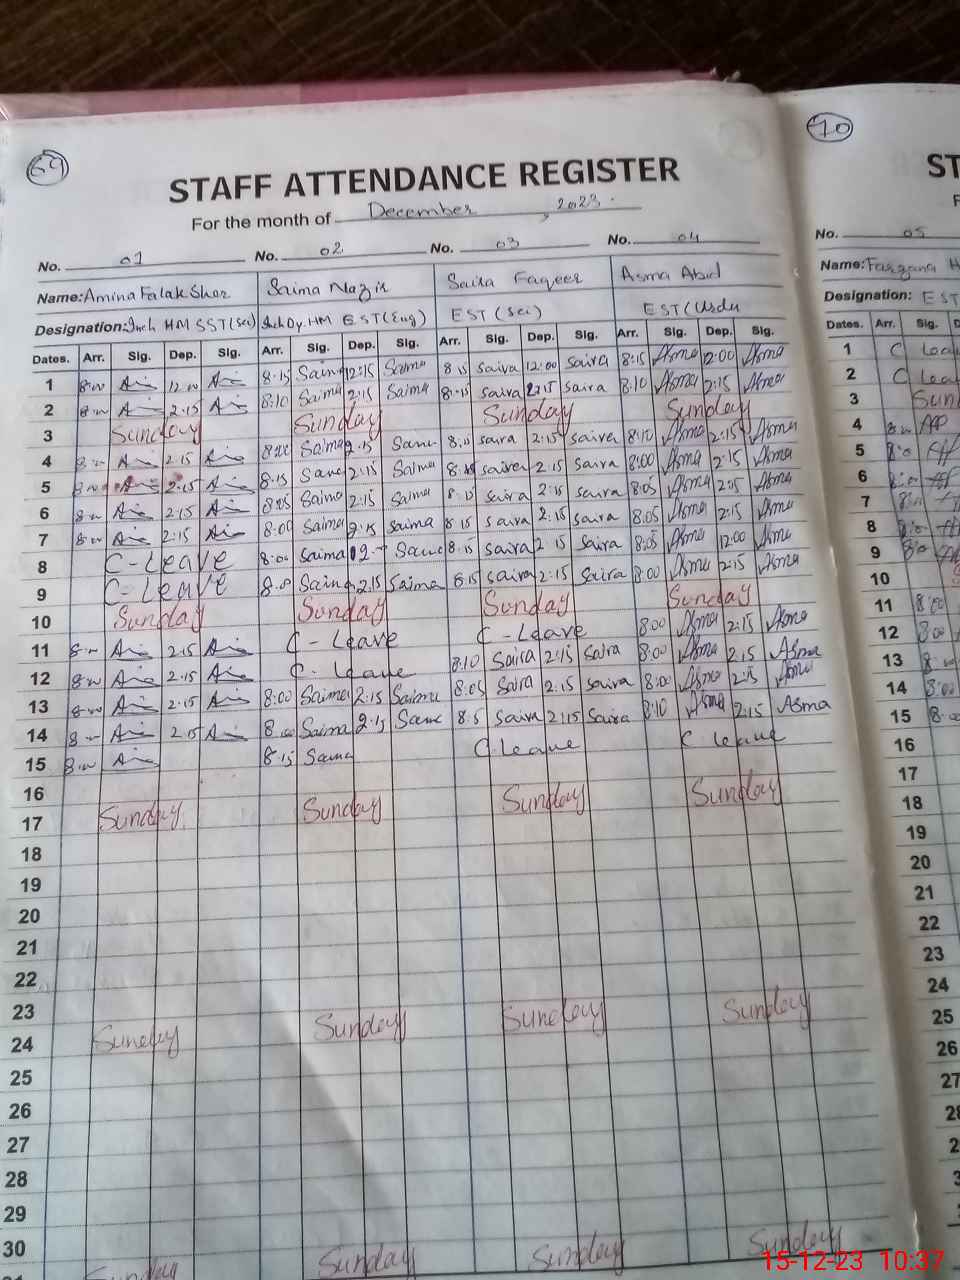 69
10
STAFF ATTENDANCE REGISTER
ST
For the month of December, 2023.
F
No. 01 No. 02 No. 03 No. 04
No. 05
Name: Amina Falak Sher Saima Nazir Saira Faqeer Asma Abid
Name: Farzana H
Designation: Inch HM SST(sci) Inch Dy. HM EST(Eng) EST (sci) EST (Urdu
Designation: EST
Dates. Arr. Sig. Dep. Sig. Arr. Sig. Dep. Sig. Arr. Sig. Dep. Sig. Arr. Sig. Dep. Sig.
Dates. Arr. Sig. D
1 8:00 12:00 8:15 Saima 12:15 Saima 8:15 saira 12:00 saira 8:15 Asma 12:00 Asma
1 C Lea
2 8:00 2:15 8:10 Saima 2:15 Saima 8:15 saira 2:15 saira 8:10 Asma 2:15 Asma
2 C Lea
3 Sunday Sunday Sunday Sunday
3 Sun
4 8:00 2:15 8:00 Saima 2:15 8:15 saira 2:15 saira 8:10 Asma 2:15 Asma
4
5 8:00 2:15 8:15 2:15 Saima saira 2:15 saira 8:00 Asma 2:15 Asma
5
6 8:00 2:15 8:05 Saima 2:15 Saima 8:15 saira 2:15 saira 8:05 Asma 2:15 Asma
6
7 8:00 2:15 8:00 Saima 2:15 saima 8:15 saira 2:15 saira 8:05 Asma 2:15 Asma
7
8 C-Leave 8:00 Saima 8:15 saira 2:15 saira 8:05 Asma 12:00 Asma
8
9 C-Leave 2:15 Saima 8:15 saira 2:15 saira 8:00 Asma 2:15 Asma
9
10 Sunday Sunday Sunday Sunday
10
11 8:00 2:15 C-Leave C-Leave 8:00 Asma 2:15 Asma
11 8:00
12 8:00 2:15 C-Leave 8:10 Saira 2:15 Saira 8:00 Asma 2:15 Asma
12 8:00
13 8:00 2:15 8:00 Saima 2:15 Saima 8:05 Saira 2:15 saira 8:00 Asma 2:15 Asma
13
14 8:00 2:15 8:00 Saima 2:15 8:5 Saira 2:15 Saira 8:10 Asma 2:15 Asma
14 8:00
15 8:00 8:15 C leave C leave
15 8:00
16
16
17 Sunday Sunday Sunday Sunday
17
18
18
19
19
20
20
21
21
22
22
23
23
24 Sunday Sunday Sunday Sunday
24
25
25
26
26
27
27
28
28
29
30
Sunday Sunday Sunday
15-12-23 10:37